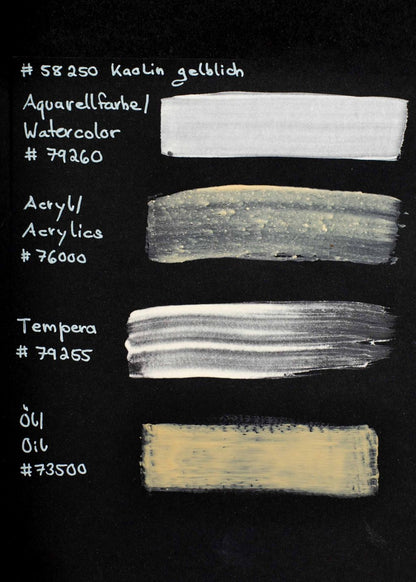 # 58250 Kaolin gelblich
Aquarellfarbe/
Watercolor
# 79260
Acryl/
Acrylics
# 76000
Tempera
# 79255
Öl/
Oil
#73500